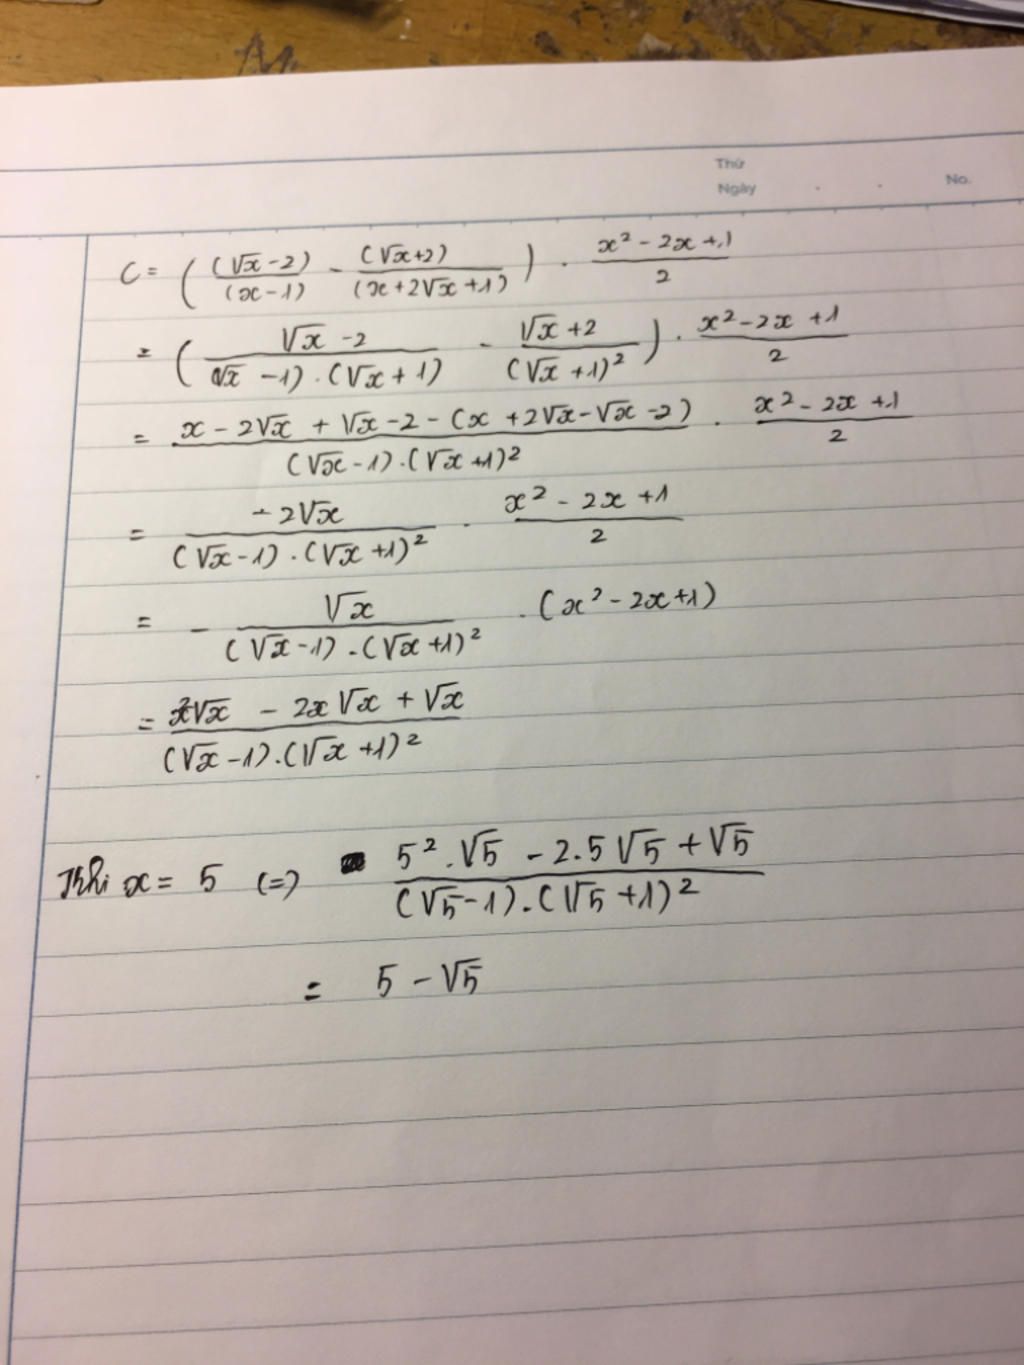 Thứ
Ngày . . No.
C = ( (√x - 2)/(x - 1) - (√x + 2)/(x + 2√x + 1) ) . (x² - 2x + 1)/2
= ( (√x - 2)/((√x - 1) . (√x + 1)) - (√x + 2)/(√x + 1)² ) . (x² - 2x + 1)/2
= (x - 2√x + √x - 2 - (x + 2√x - √x - 2))/((√x - 1) . (√x + 1)²) . (x² - 2x + 1)/2
= (- 2√x)/((√x - 1) . (√x + 1)²) . (x² - 2x + 1)/2
= - √x/((√x - 1) . (√x + 1)²) . (x² - 2x + 1)
= (x²√x - 2x√x + √x)/((√x - 1) . (√x + 1)²)
Khi x = 5 (=) (5² . √5 - 2.5√5 + √5)/((√5 - 1) . (√5 + 1)²)
= 5 - √5